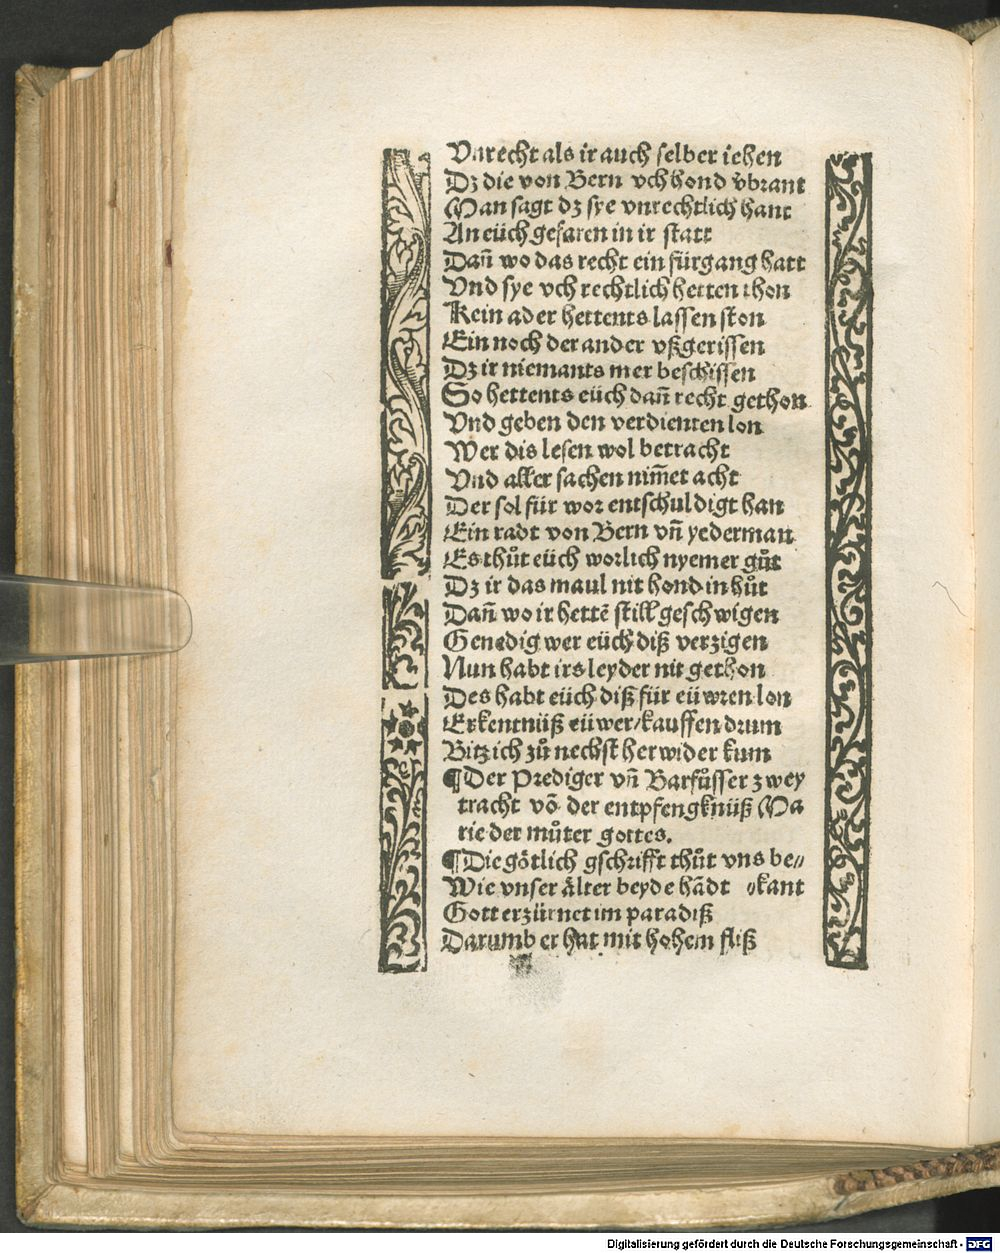 Vnrecht als ir auch selber iehen
Dz die von Bern vch hond v̊brant
Man sagt dz sye vnrechtlich hant
An eüch gefaren in ir statt
Dañ wo das recht ein fürgang hatt
Vnd sye vch rechtlich hetten thon
Kein ader hettents lassen ston
Ein noch der ander vßgerissen
Dz ir niemants mer beschissen
So hettents eüch dañ recht gethon
Vnd geben den verdienten lon
Wer dis lesen wol betracht
Vnd aller sachen nim̃et acht
Der sol für wor entschuldigt han
Ein radt von Bern vñ yederman
Es thůt eüch worlich nyemer gůt
Dz ir das maul nit hond in hůt
Dañ wo ir hettẽ still geschwigen
Genedig wer eüch diß verzigen
Nun habt irs leyder nit gethon
Des habt eüch diß für eüwren lon
Erkentnüß eüwer/kauffen drum
Bitz ich zů nechst her wider kum
¶Der Prediger vñ Barfůsser zwey
tracht võ der entpfengknüß Ma
rie der můter gottes.
¶Die götlich gschrifft thůt vns be⸗
Wie vnser älter beyde hãdt ⸗kant
Gott erzürnet im paradiß
Darumb er hat mit hohem fliß
Digitalisierung gefördert durch die Deutsche Forschungsgemeinschaft - DFG